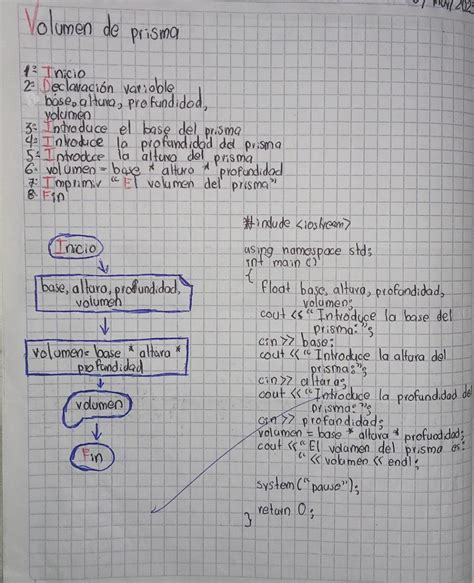 Volumen de prisma
1- Inicio
2- Declaración variable
base, altura, profundidad,
volumen
3- Introduce el base del prisma
4- Introduce la profundidad del prisma
5- Introduce la altura del prisma
6- volumen = base * altura * profundidad
7- Imprimir "El volumen del prisma"
8- Fin
Inicio
base, altura, profundidad,
volumen
volumen= base * altura *
profundidad
volumen
Fin
#include <iostream>
using namespace std;
int main ()
{
float base, altura, profundidad,
volumen;
cout << "Introduce la base del
prisma:";
cin >> base;
cout << "Introduce la altura del
prisma:";
cin >> altura;
cout << "Introduce la profundidad del
prisma:";
cin >> profundidad;
volumen = base * altura * profundidad;
cout << "El volumen del prisma es:
" << volumen << endl;
system("pause");
return 0;
}